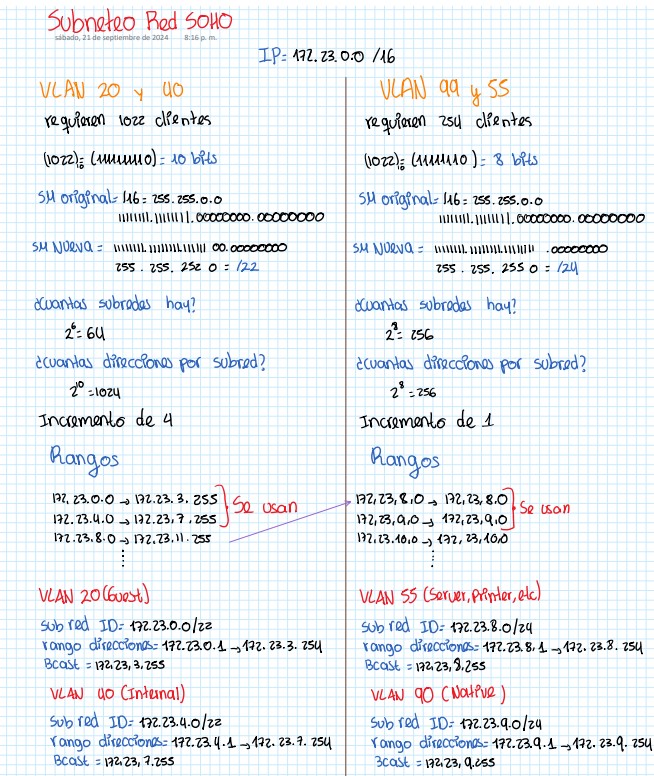 Subneteo Red SOHO
sábado, 21 de septiembre de 2024 8:16 p. m.
IP= 172.23.0.0 /16
VLAN 20 y 40
requieren 1022 clientes
(1022)= (1111111110) = 10 bits
SM original= /16 = 255.255.0.0
11111111.11111111.00000000.00000000
SM Nueva = 11111111.11111111.111111 00.00000000
255 . 255. 252 0 = /22
¿Cuantas subredes hay?
2^6= 64
¿Cuantas direcciones por subred?
2^10 =1024
Incremento de 4
Rangos
172, 23.0.0 → 172.23. 3. 255
172.23.4.0 → 172.23,7.255
172.23.8.0 → 172.23.11.255
Se usan
VLAN 20 (Guest)
Sub red ID= 172.23.0.0/22
rango direcciones= 172.23.0.1 → 172. 23.3. 254
Bcast = 172,23,3.255
VLAN 40 (Internal)
Sub red ID= 172.23.4.0/22
rango direcciones= 172.23.4.1 → 172.23.7. 254
Bcast = 172.23, 7.255
VLAN 99 y 55
requieren 254 clientes
(1022)= (11111110) = 8 bits
SM original= /16 = 255.255.0.0
11111111.11111111.00000000.00000000
SM Nueva = 11111111.11111111.11111111 .00000000
255 . 255. 255 0 = /24
¿Cuantas subredes hay?
2^8= 256
¿Cuantas direcciones por subred?
2^8 =256
Incremento de 1
Rangos
172,23,8,0 → 172,23,8.0
172,23,9,0 → 172,23,9.0
172,23.10,0 → 172,23,10,0
Se usan
VLAN 55 (Server, Printer, etc)
Sub red ID= 172.23.8.0/24
rango direcciones= 172.23.8.1 → 172. 23.8. 254
Bcast = 172,23, 8.255
VLAN 90 (Native)
Sub red ID= 172.23.9.0/24
rango direcciones= 172.23.9.1 → 172.23.9. 254
Bcast = 172,23, 9.255